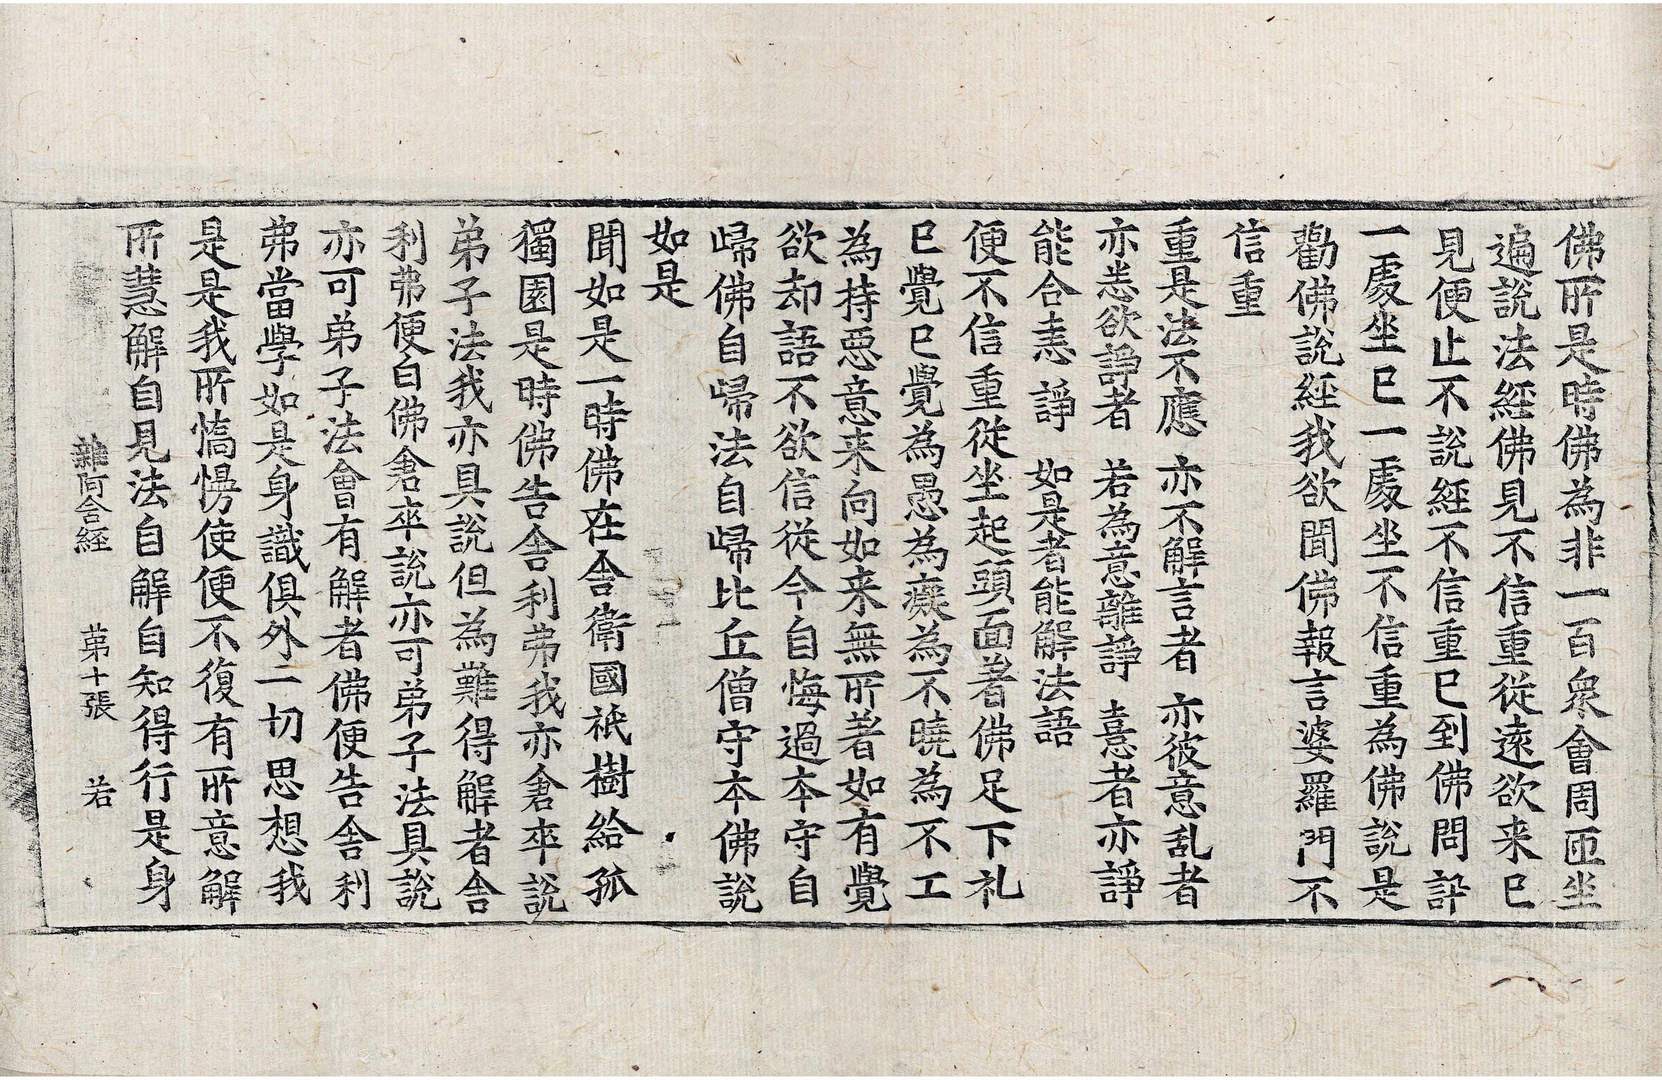 佛所是時佛為非一百衆會周匝坐
遍說法經佛見不信重從遠欲来已
見便止不說經不信重已到佛問訊
一處坐已一處坐不信重為佛說是
勸佛說經我欲聞佛報言婆羅門不
信重
重是法不應 亦不解言者 亦彼意乱者
亦恚欲諍者 若為意離諍 憙者亦諍
能合恚諍 如是者能解法語
便不信重從坐起頭面著佛足下礼
已覺已覺為愚為癡為不曉為不工
為持惡意来向如来無所著如有覺
欲却語不欲信從今自悔過本守自
歸佛自歸法自歸比丘僧守本佛說
如是
聞如是一時佛在舍衛國祇樹給孤
獨園是時佛告舍利弗我亦倉卒說
弟子法我亦具說但為難得解者舍
利弗便白佛倉卒說亦可弟子法具說
亦可弟子法會有解者佛便告舍利
弗當學如是身識俱外一切思想我
是是我所憍慢使便不復有所意解
所慧解自見法自解自知得行是身
雜阿含経 苐十張 若